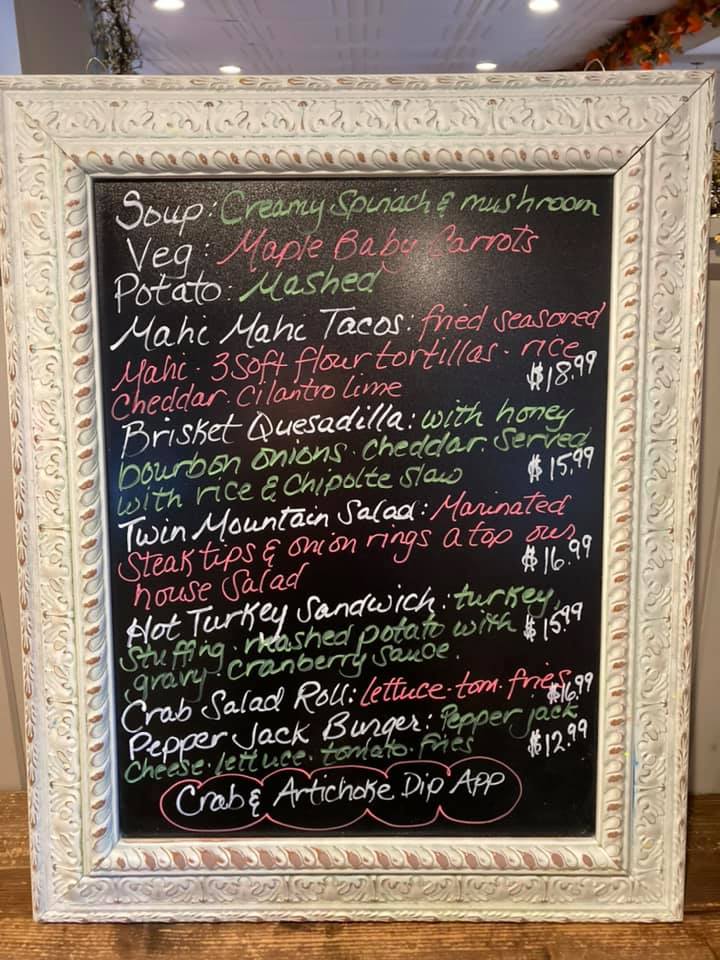 Soup: Creamy Spinach & mushroom
Veg: Maple Baby Carrots
Potato: Mashed
Mahi Mahi Tacos: fried seasoned
Mahi · 3 soft flour tortillas · rice
Cheddar · Cilantro lime $18.99
Brisket Quesadilla: with honey
bourbon onions · cheddar · Served
with rice & Chipolte slaw $15.99
Twin Mountain Salad: Marinated
Steak tips & onion rings a top our
house Salad $16.99
Hot Turkey Sandwich: turkey,
Stuffing · mashed potato with $15.99
gravy · cranberry sauce.
Crab Salad Roll: lettuce · tom · fries $16.99
Pepper Jack Burger: Pepper jack
Cheese · lettuce · tomato · fries $12.99
Crab & Artichoke Dip App